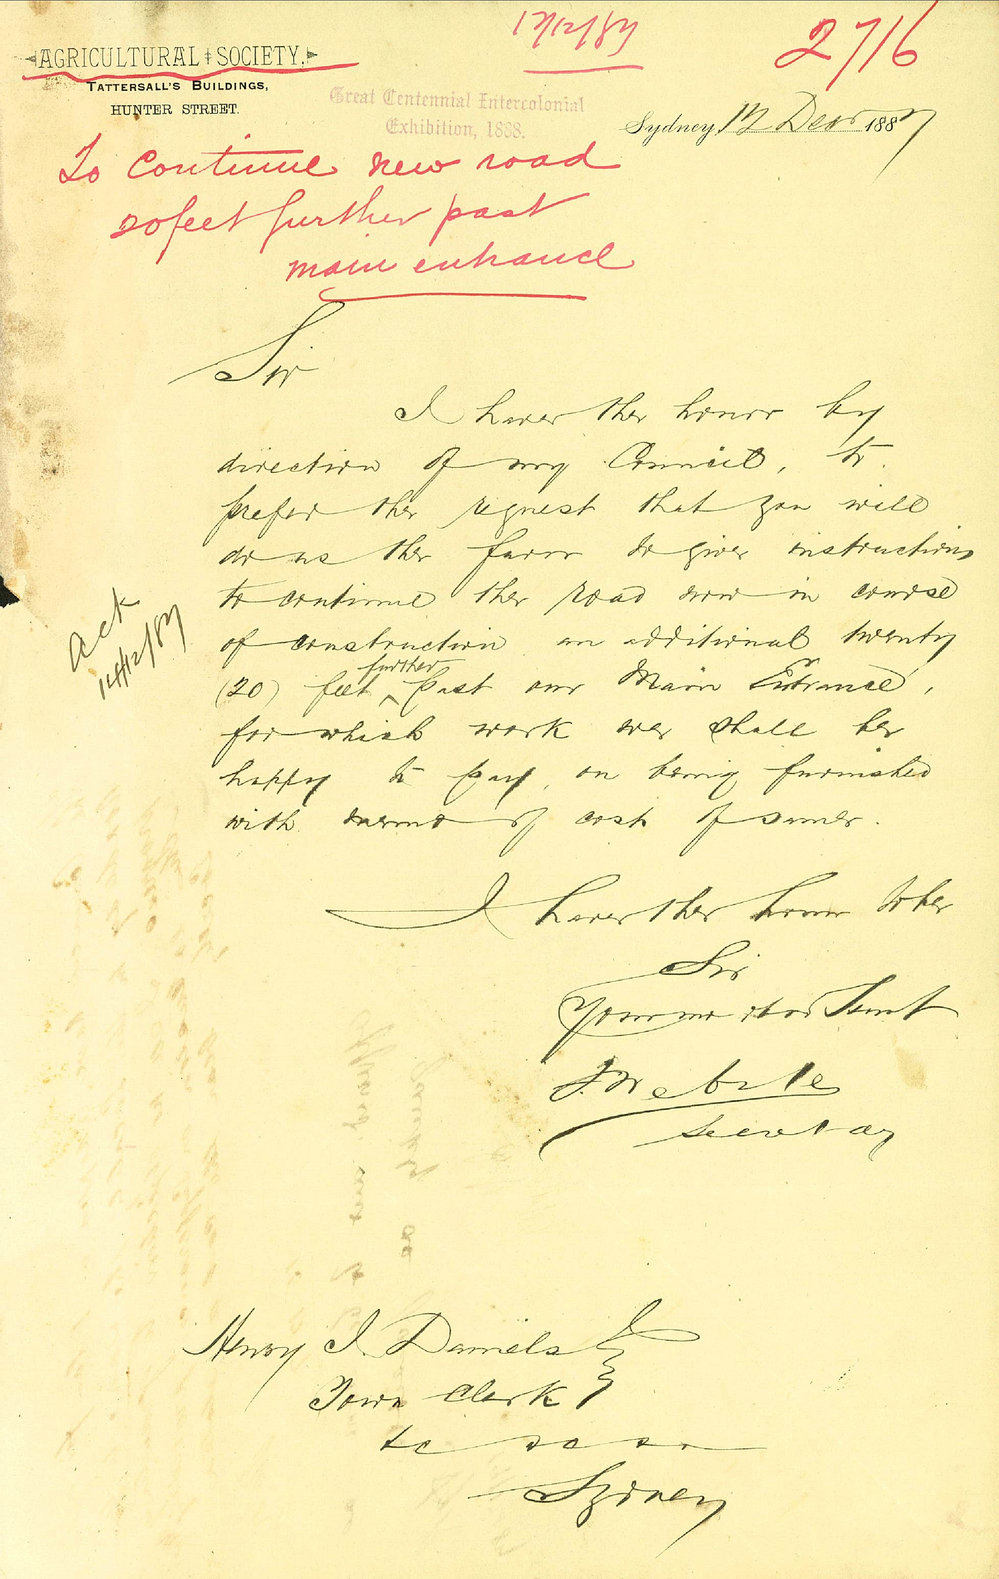 17/12/87
2716
AGRICULTURAL SOCIETY,
TATTERSALL'S BUILDINGS,
HUNTER STREET.
Great Centennial Intercolonial
Exhibition, 1888.
Sydney, 17 Decr 1887
To continue new road
20 feet further past
main entrance
Sir
I have the honor by
direction of my Council, to
prefer the request that you will
do us the favor to give instructions
to continue the road now in course
of construction an additional twenty
(20) feet further past our Main Entrance,
for which work we shall be
happy to pay, on being furnished
with memo of cost of same.
Ack
14/12/87
I have the honor to be
Sir
Your mo obed Servt
F. Webster
Secretary
Henry J. Daniels Esq
Town Clerk
&c &c &c
Sydney